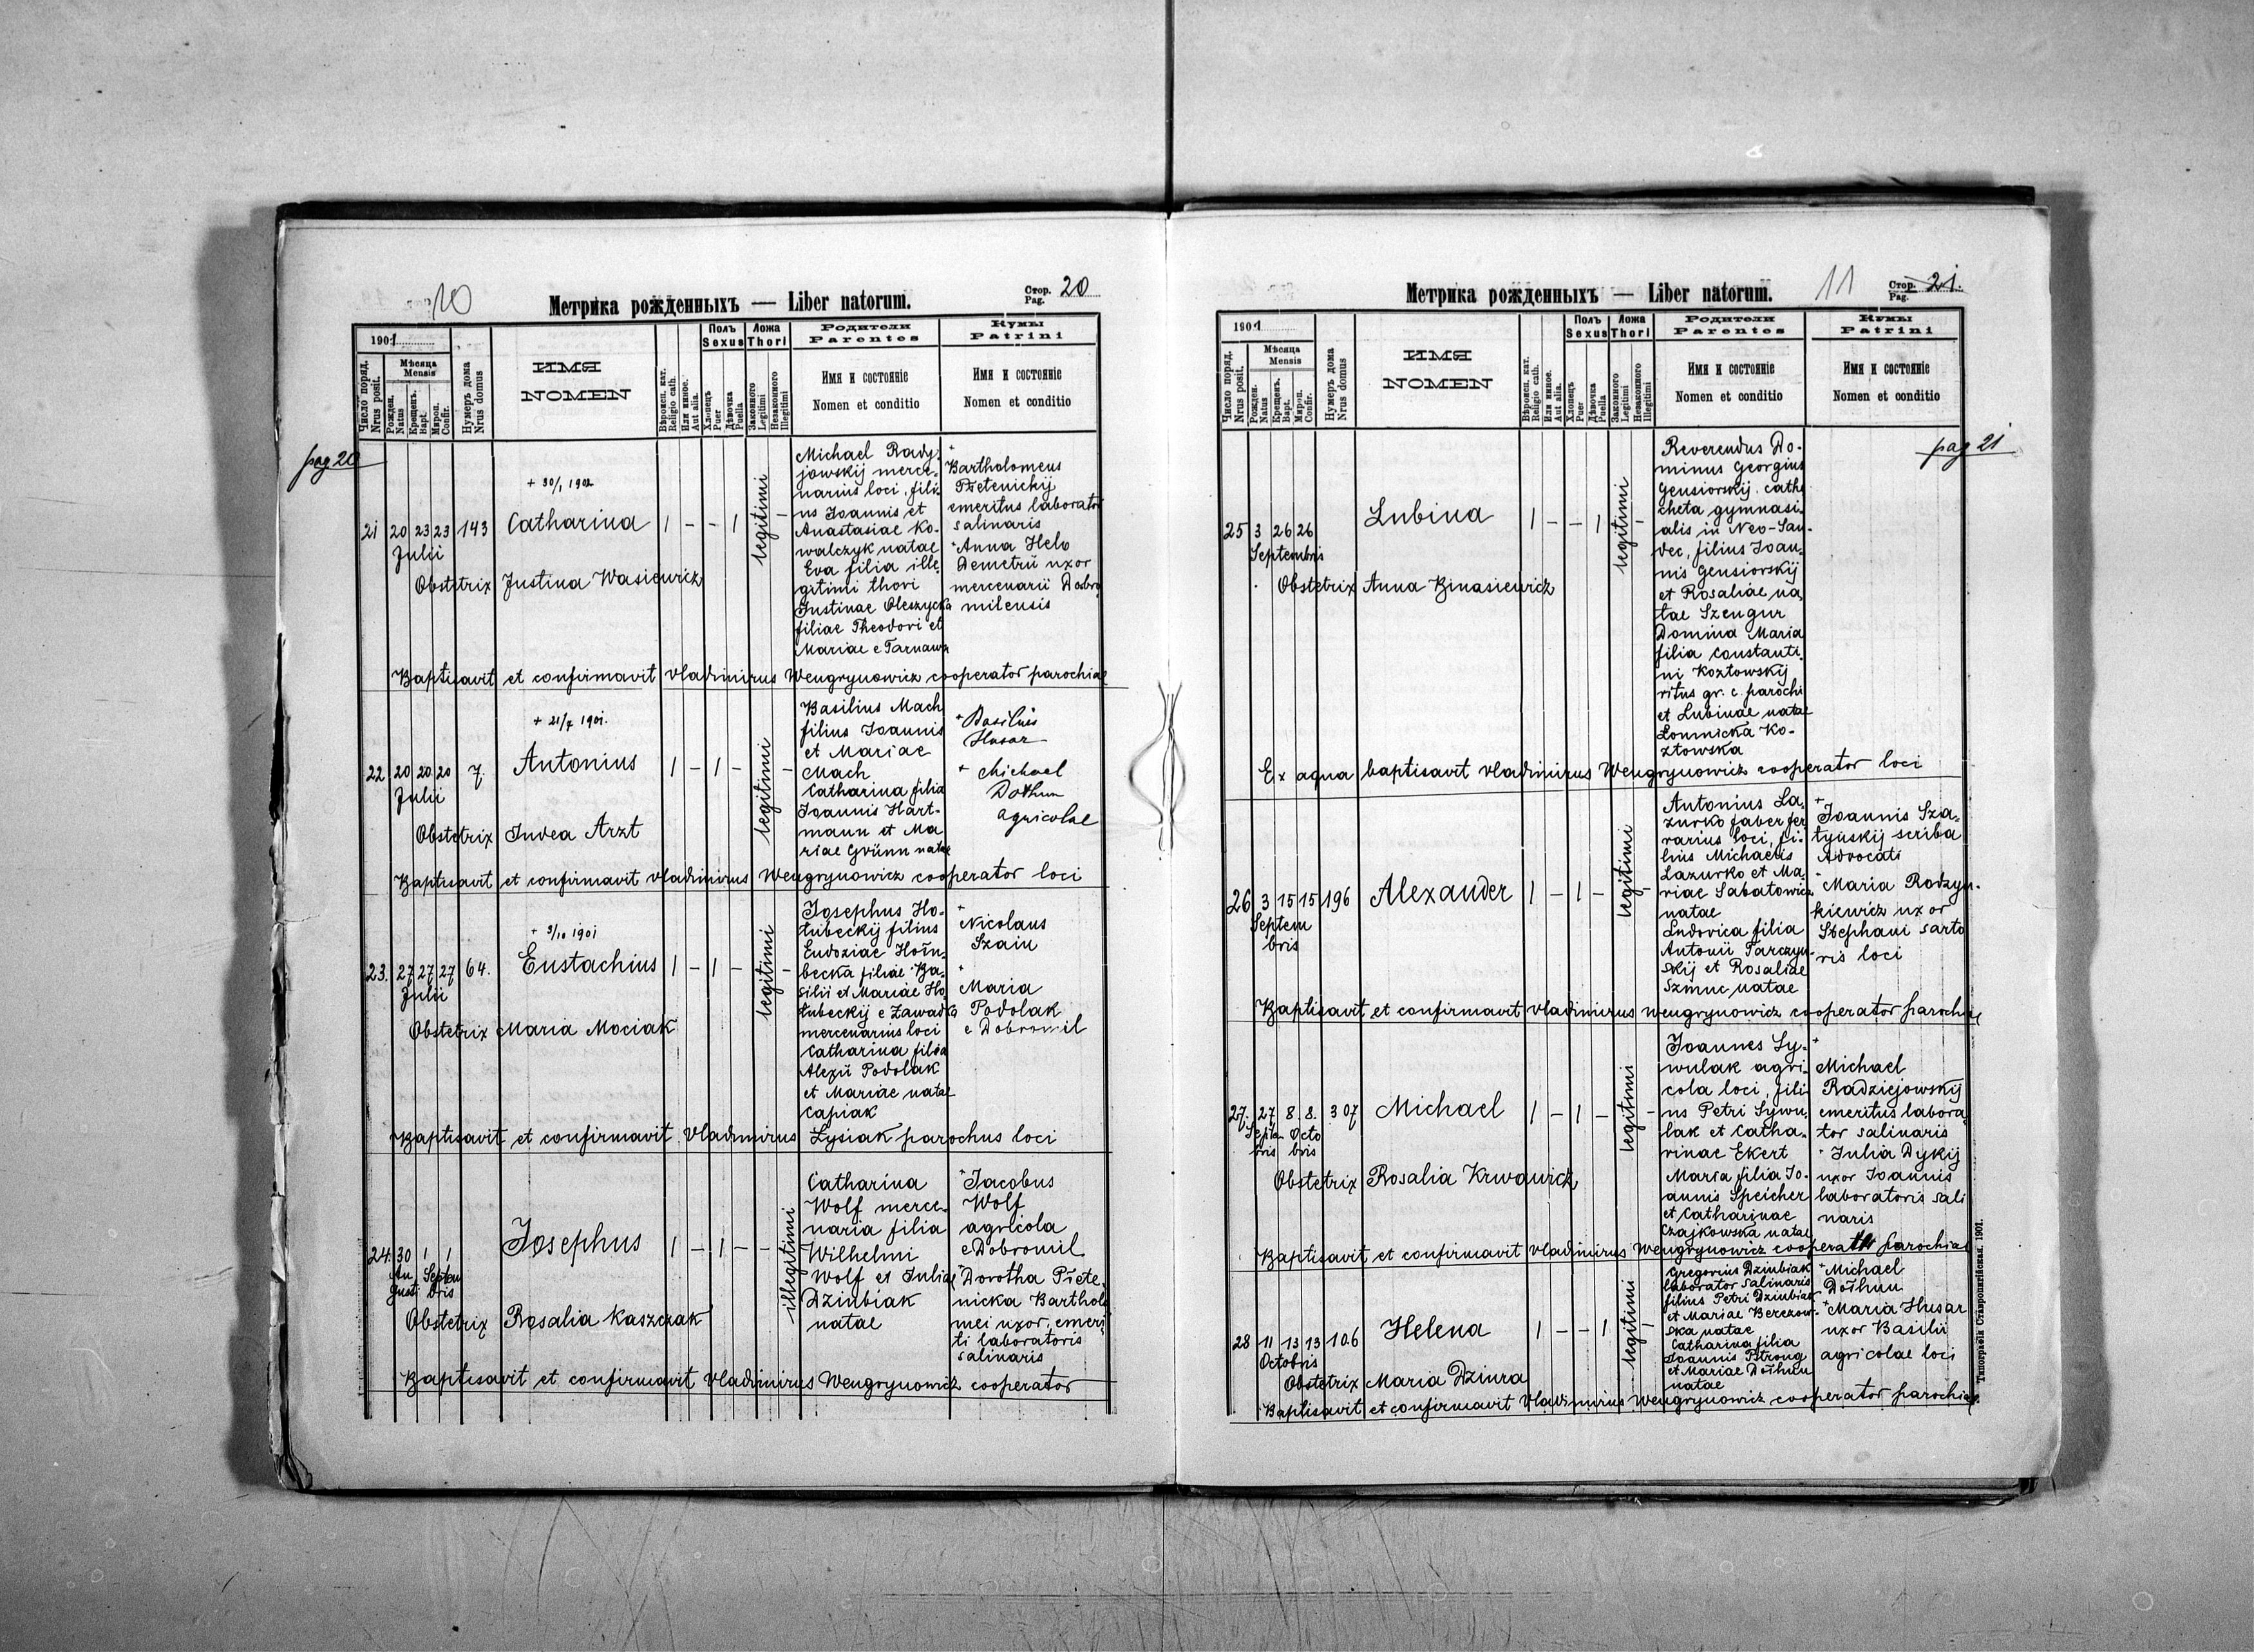 10
Метрика рожденныхъ — Liber natorum.
Стор. Pag. 20
1901
Число поряд. Nrus posit.
Мѣсяца Mensis
Рожден. Natus
Крещенъ. Bapt.
Мирοп. Confir.
Нумеръ дома Nrus domus
ИМЯ
NOMEN
Вѣроисп. кат. Religio cath.
Или иноe. Aut alia.
Полъ Sexus
Хлопецъ Puer
Дѣвочка Puella
Ложа Thori
Законного Legitimi
Незаконного Illegitimi
Родители
Parentes
Имя и состояніе
Nomen et conditio
Кумы
Patrini
Имя и состояніе
Nomen et conditio
pag 20
+ 30/1 1902
21 20 23 23 143 Catharina 1 - - 1 legitimi -
Julii
Obstetrix Justina Wasiewicz
Michael Rady-
jowskij merce-
narius loci, fili-
us Joannis et
Anastasiae Ko-
walczyk natae
Eva filia ille-
gitimi thori
Justinae Oleszycka
filiae Theodori et
Mariae e Tarnawa
+
Bartholomeus
emeritus laborator
salinaris
+Anna Helo
Demetrii uxor
mercenarii Dobro
milensis
Baptisavit et confirmavit Vladimirus Wengrynowicz cooperator parochiae
+ 21/7 1901.
22 20 20 20 7. Antonius 1 - 1 - legitimi -
Julii
Obstetrix Judea Arzt
Basilius Mach
filius Joannis
et Mariae
Mach
Catharina filia
Joannis Hart-
mann et Ma
riae Grünn natae
+ Basilius
Husar
+ Michael
Dołhun
agricolae
Baptisavit et confirmavit Vladimirus Wengrynowicz cooperator loci
+ 3/10 1901
23. 27 27 27 64. Eustachius 1 - 1 - legitimi -
Julii
Obstetrix Maria Mociak
Josephus Ho-
łubeckij filius
Eudoxiae Hołu-
becka filiae Ba-
silii et Mariae Ho-
łubeckij e Zawadka
mercenarius loci
Catharina filia
Alexii Podolak
et Mariae natae
Capiak
+
Nicolaus
Szain
+
Maria
Podolak
e Dobromil
Baptisavit et confirmavit Vladimirus Łysiak parochus loci
24. 30 1 1 Josephus 1 - 1 - - illegitimi
Au Septem
gusti bris
Obstetrix Rosalia Kaszczak
Catharina
Wolf merce-
naria filia
Wilhelmi
Wolf et Juliae
Dziubiak
natae
+Jacobus
Wolf
agricola
e Dobromil
+Dorotha Piete-
nicka Bartholo
mei uxor, emeri-
ti laboratoris
salinaris
Baptisavit et confirmavit Vladimirus Wengrynowicz cooperator
Метрика рожденныхъ — Liber natorum.
11
Стор. Pag. 21.
1901
Число поряд. Nrus posit.
Мѣсяца Mensis
Рожден. Natus
Крещенъ. Bapt.
Мироп. Confir.
Нумеръ дома Nrus domus
ИМЯ
NOMEN
Вѣроисп. кат. Religio cath.
Или иноe. Aut alia.
Полъ Sexus
Хлопецъ Puer
Дѣвочка Puella
Ложа Thori
Законного Legitimi
Незаконного Illegitimi
Родители
Parentes
Имя и состояніе
Nomen et conditio
Кумы
Patrini
Имя и состояніе
Nomen et conditio
pag 21
25 3 26 26 Lubina 1 - - 1 legitimi -
Septembris
Obstetrix Anna Binasiewicz
Reverendus Do-
minus Georgius
Gensiorskij, cathe
cheta gymnasi-
alis in Neo-San-
dec, filius Joan-
nis Gensiorskij
et Rosaliae na-
tae Szengur
Domina Maria
filia Constanti-
ni Kozłowskij
ritus gr. c. parochi
et Lubinae natae
Łomnicka Ko-
złowska
Ex aqua baptisavit Vladimirus Wengrynowicz cooperator loci
26 3 15 15 196 Alexander 1 - 1 - legitimi -
Septem
bris
Antonius La-
zurko faber fer
rarius loci, fi-
lius Michaelis
Lazurko et Ma-
riae Sabatowicz
natae
Ludovica filia
Antonii Tarczyn-
skij et Rosaliae
Szmuc natae
+
Joannis Sza-
tyńskij scriba
Advocati
+Maria Rodzyn-
kiewicz uxor
Stephani sarto
ris loci
Baptisavit et confirmavit Vladimirus Wengrynowicz cooperator parochiae
27. 27 8. 8. 307 Michael 1 - 1 - legitimi -
Septem Octo
bris bris
Obstetrix Rosalia Krwawicz
Joannes Sy-
wulak agri-
cola loci, fili
us Petri Sywu-
lak et Catha-
rinae Ekert
Maria filia Jo-
annis Speicher
et Catharinae
Czajkowska natae
+
Michael
Radziejowskij
emeritus labora-
tor salinaris
+ Julia Dykij
uxor Joannis
laboratoris sali
naris
Baptisavit et confirmavit Vladimirus Wengrynowicz cooperator parochiae
28 11 13 13 106 Helena 1 - - 1 legitimi -
Octobris
Obstetrix Maria Dziura
Gregorius Dziubiak
laborator salinaris
filius Petri Dziubiak
et Mariae Berezow-
ska natae
Catharina filia
Joannis Pstrong
et Mariae Dołhun
natae
+Michael
Dołhun
+Maria Husar
uxor Basilii
agricolae loci
Baptisavit et confirmavit Vladimirus Wengrynowicz cooperator parochiae
Типографія Ставропигійская. 1901.